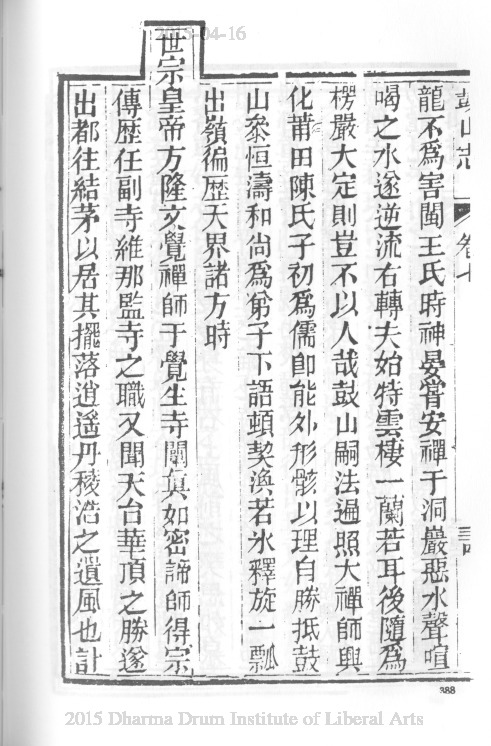 2015-04-16
鼓山志 卷七
龍不爲害閩王氏時神晏嘗安禪于洞巖惡水聲喧
喝之水遂逆流右轉夫始特雲棲一蘭若耳後隨爲
楞嚴大定則豈不以人哉鼓山嗣法遍照大禪師興
化莆田陳氏子初爲儒卽能外形骸以理自勝抵鼓
山叅恒濤和尚爲弟子下語頓契渙若氷釋旋一瓢
出嶺徧歷天界諸方時
世宗皇帝方隆文覺禪師于覺生寺闡眞如密諦師得宗
傳歷任副寺維那監寺之職又聞天台華頂之勝遂
出都往結茅以居其擺落逍遙丹稜浩之遺風也計
388
2015 Dharma Drum Institute of Liberal Arts